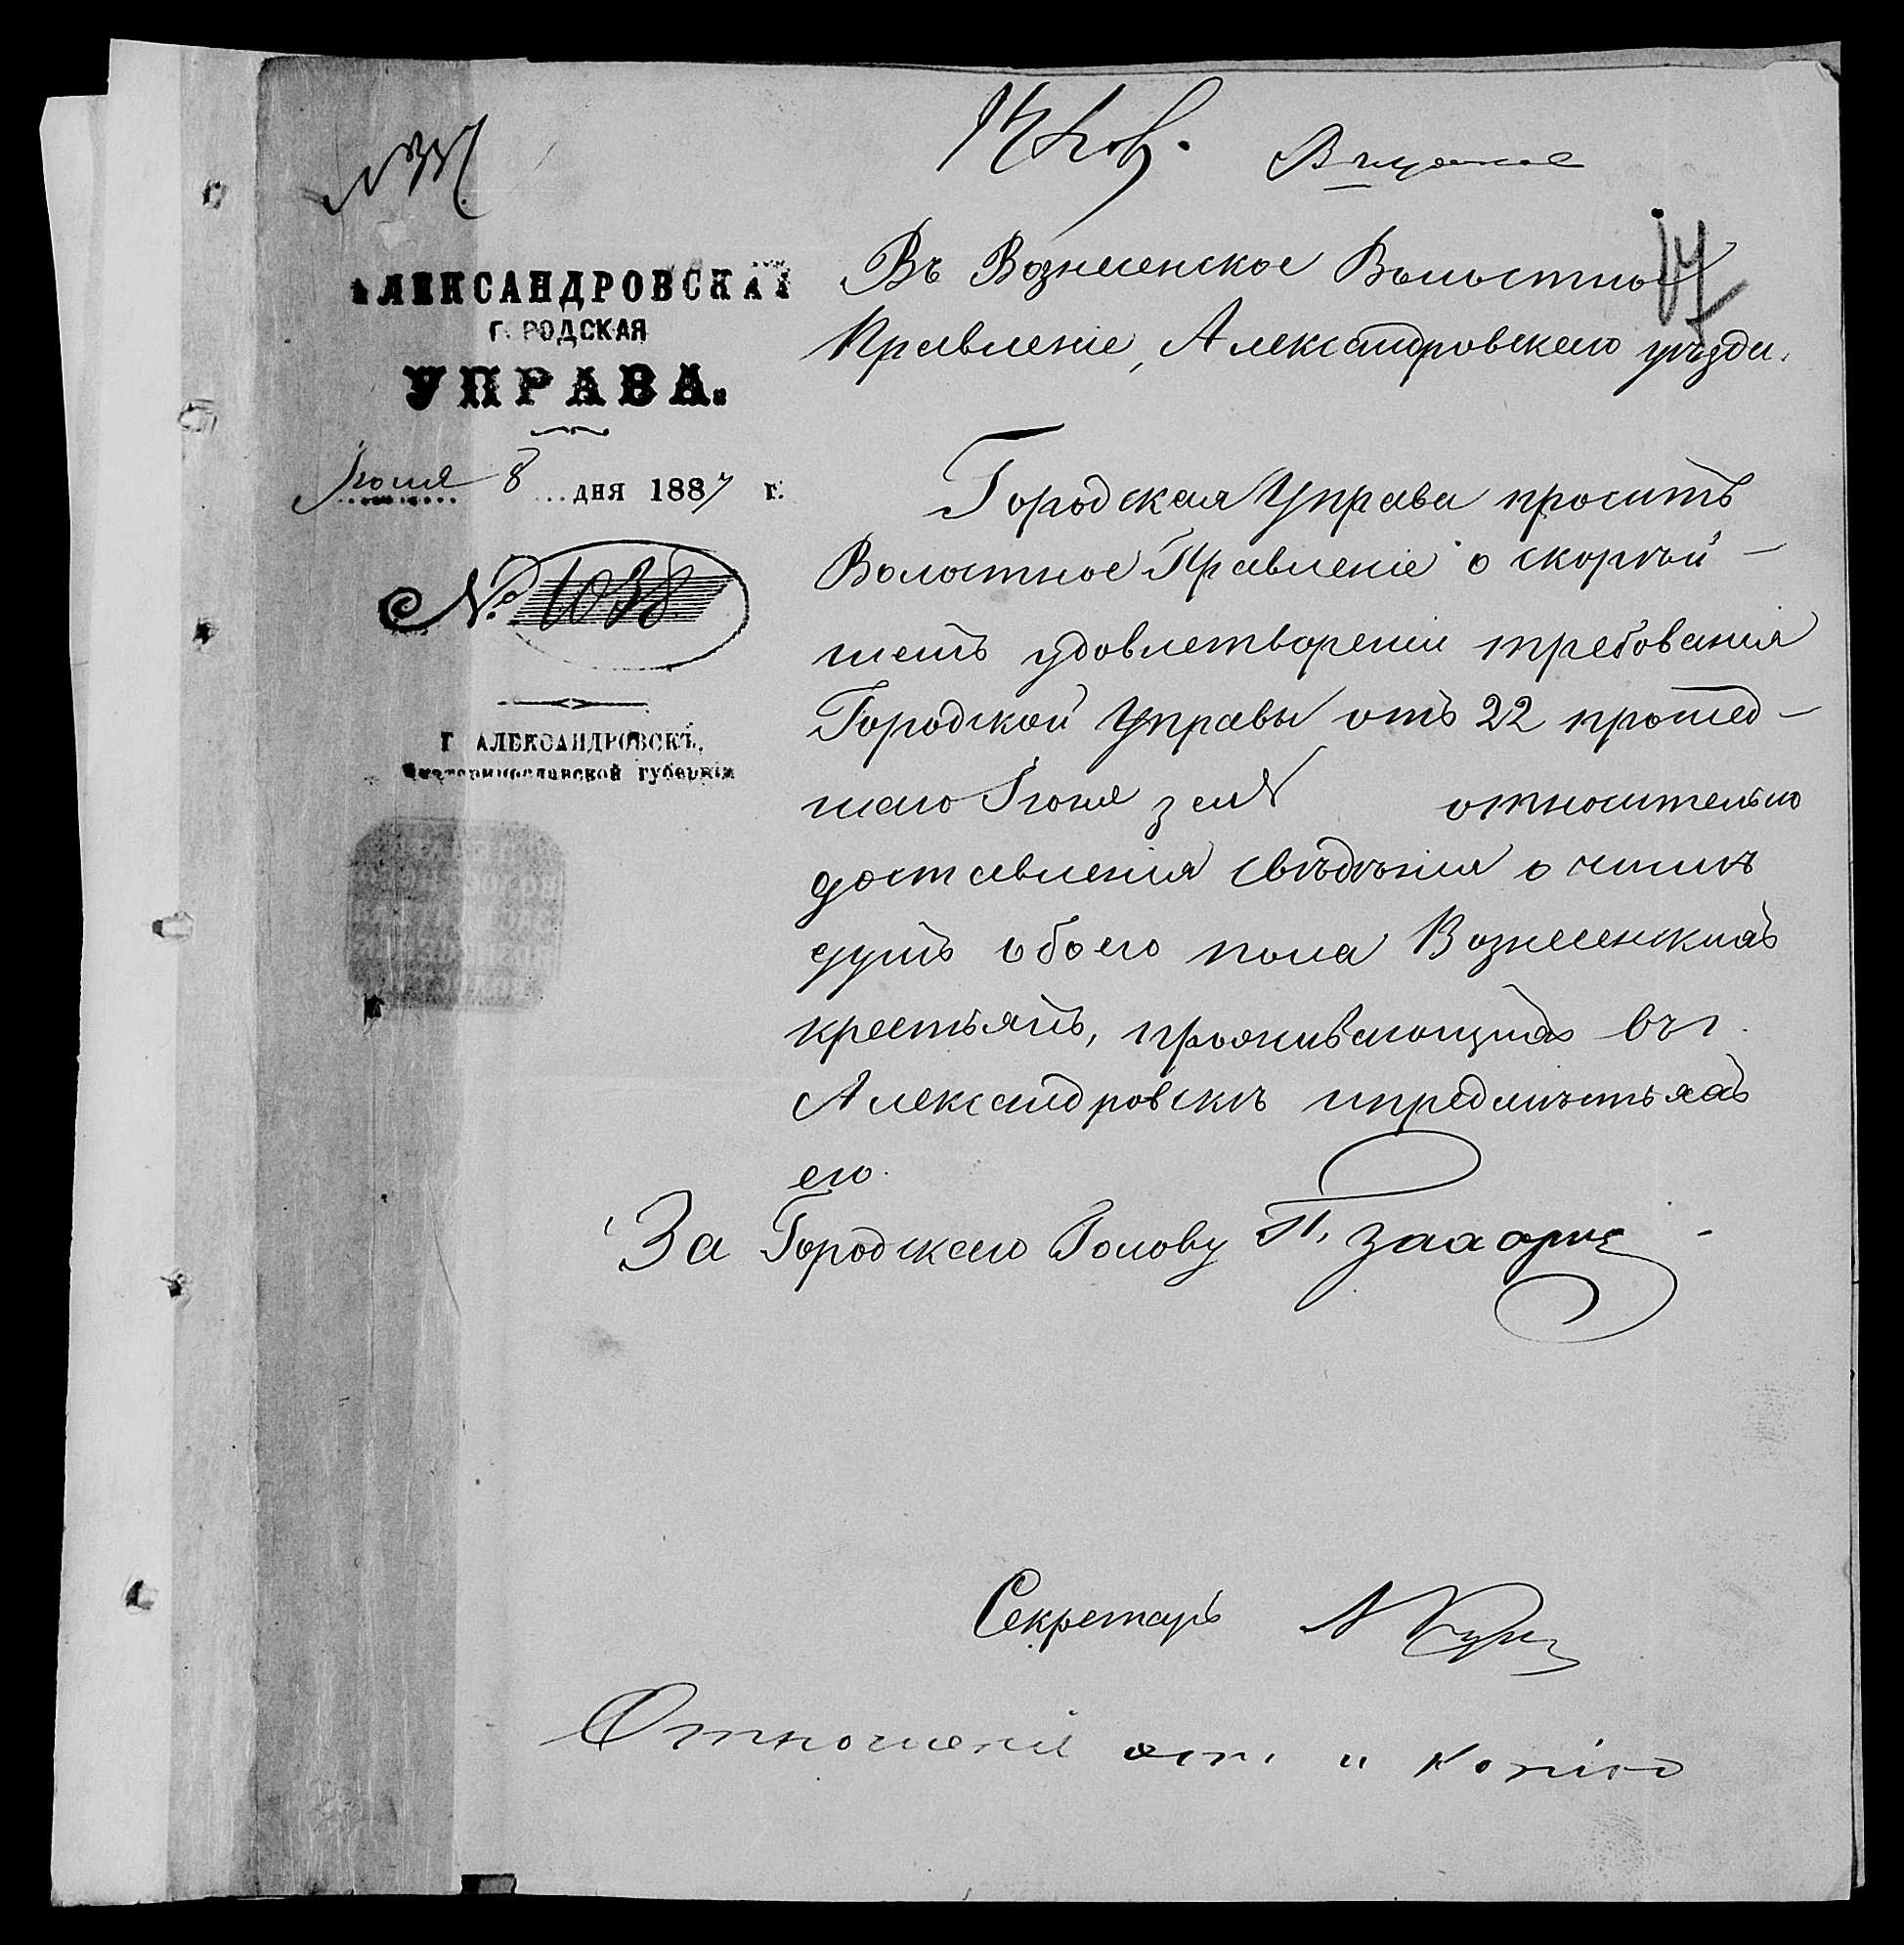 АЛЕКСАНДРОВСКАЯ
ГОРОДСКАЯ
УПРАВА.
8 дня 1887 г.
№ 1038
Г. АЛЕКСАНДРОВСКЪ,
Екатеринославской губерніи
17
Въ Вознесенское Волостное
Правленіе, Александровскаго уѣзда.
Городская Управа проситъ
Волостное Правленіе о скорѣй-
шемъ удовлетвореніи требованія
Городской Управы отъ 22 прошед-
шаго Іюня за № относительно
доставленія свѣдѣнія о числѣ
душъ обоего пола Вознесенскихъ
крестьянъ, проживающихъ въ г.
Александровскѣ и предмѣстьяхъ
его.
За Городскаго Голову П.
Секретарь
Отношеніе и копію